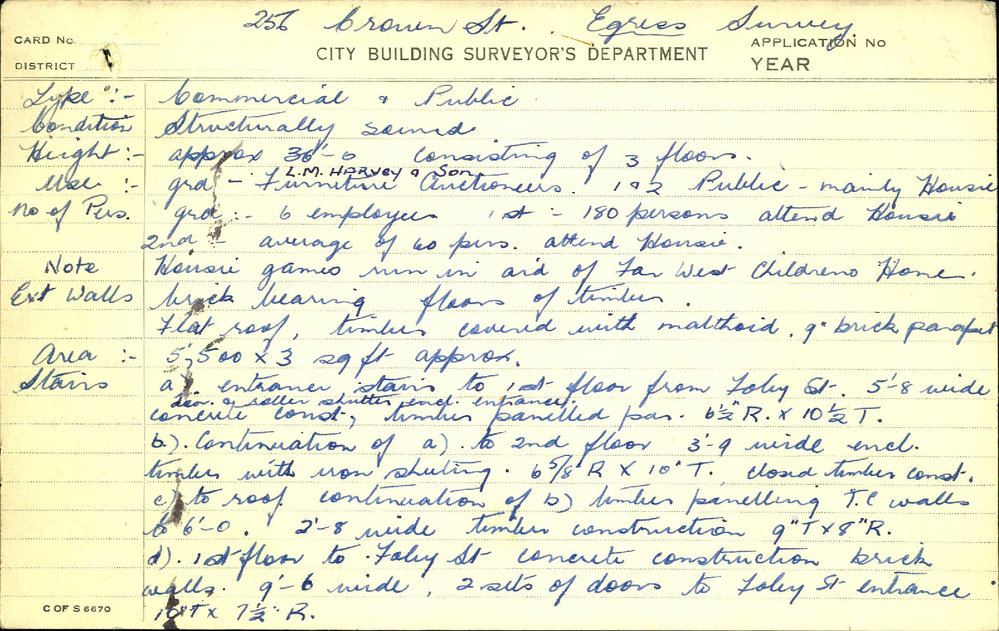 256 Crown St. Egress Survey.
CARD No.
APPLICATION No
CITY BUILDING SURVEYOR'S DEPARTMENT
DISTRICT
YEAR
Type :- Commercial & Public
Condition Structurally sound
Height :- approx 36'-0 consisting of 3 floors.
L.M. HARVEY & Son
Use :- grd - Furniture Auctioneers. 1 & 2 Public - mainly Housie
No of Pers. grd :- 6 employees 1st - 180 persons attend Housie
2nd - average of 60 pers. attend Housie.
Note Housie games run in aid of Far West Childrens Home.
Ext Walls brick bearing floors of timber.
Flat roof, timber covered with malthoid. 9" brick parapet
Area :- 5,500 x 3 sq ft approx.
Stairs a). entrance stairs to 1st floor from Foley St. 5'-8 wide
roller shutter encl. entrance.
concrete const, timber panelled 6½" R. x 10½ T.
b.). Continuation of a). to 2nd floor 3'-9 wide encl.
timber with iron sheeting. 6 5/8" R X 10" T. closed timber const.
c) to roof continuation of b) timber panelling T.C walls
to 6'-0. 2'-8 wide timber construction 9" T x 8" R.
d). 1st floor to Foley St concrete construction brick
walls. 9'-6 wide, 2 sets of doors to Foley St entrance
10" T x 7½" R.
C OF S 6670